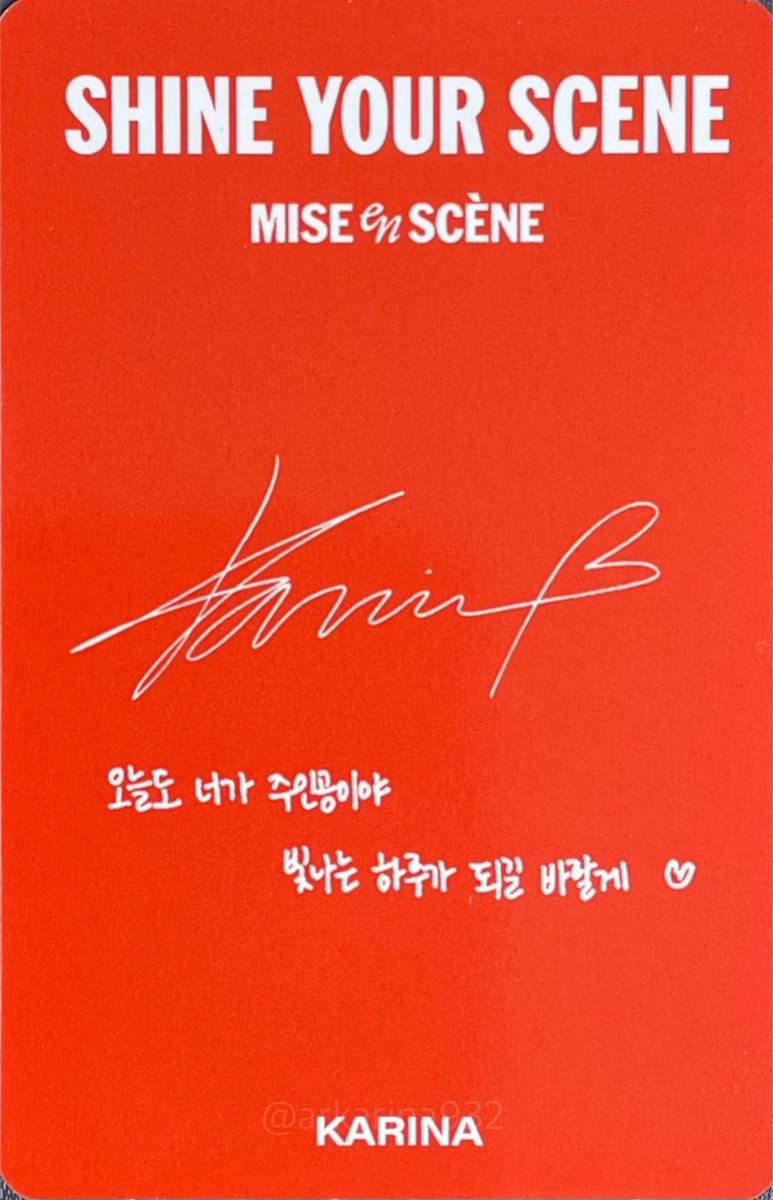 SHINE YOUR SCENE
MISE en SCÈNE
Karina
오늘도 너가 주인공이야
빛나는 하루가 되길 바랄게 ♡
@arkarina932
KARINA